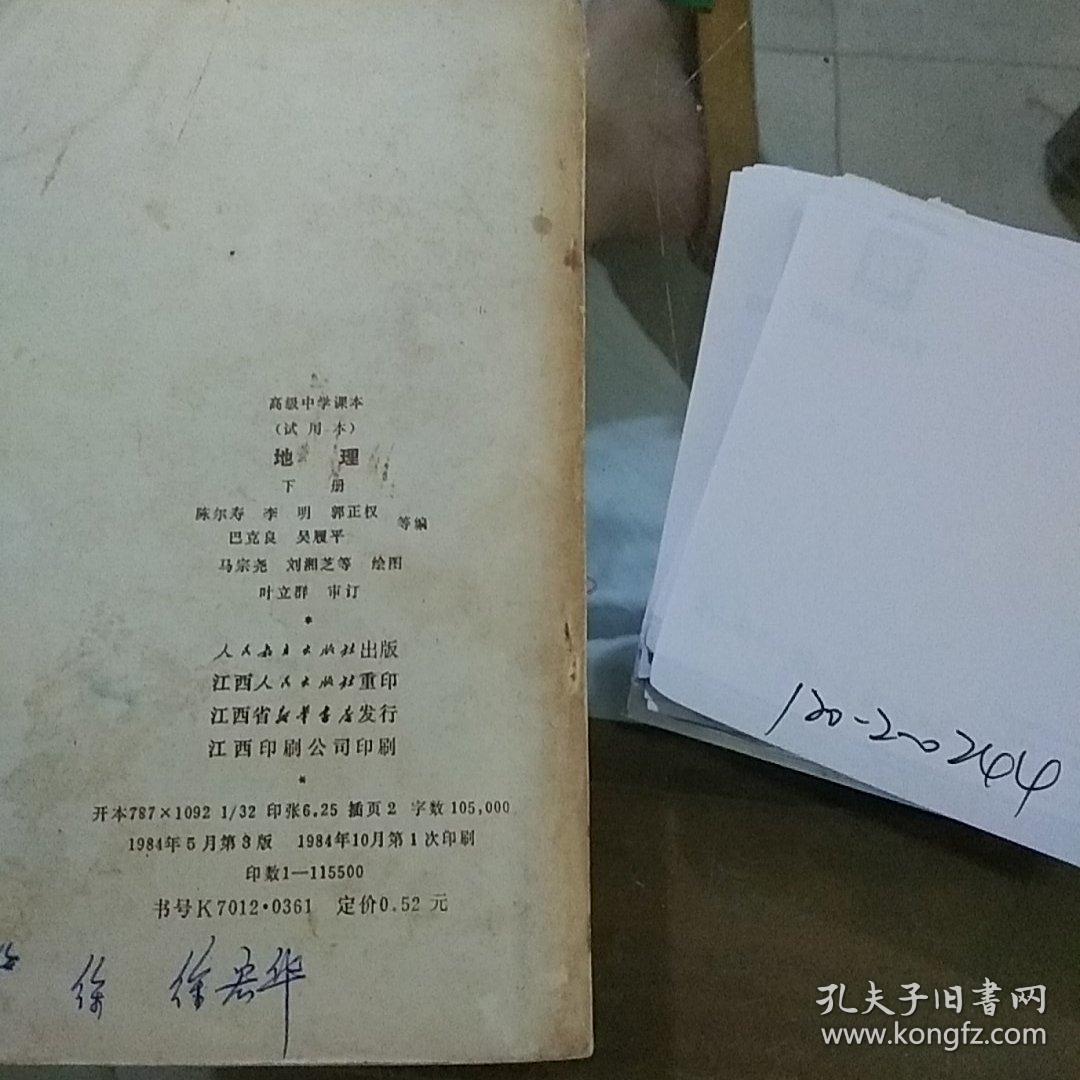 高级中学课本
（试用本）
地 理
下 册
陈尔寿 李 明 郭正权
巴克良 吴履平 等编
马宗尧 刘湘芝等 绘图
叶立群 审订
*
人民教育出版社出版
江西人民出版社重印
江西省新华书店发行
江西印刷公司印刷
*
开本787×1092 1/32 印张6.25 插页2 字数105,000
1984年5月第3版 1984年10月第1次印刷
印数1—115500
书号K7012·0361 定价0.52元
徐 徐宏华
120-200244
孔夫子旧書网
www.kongfz.com